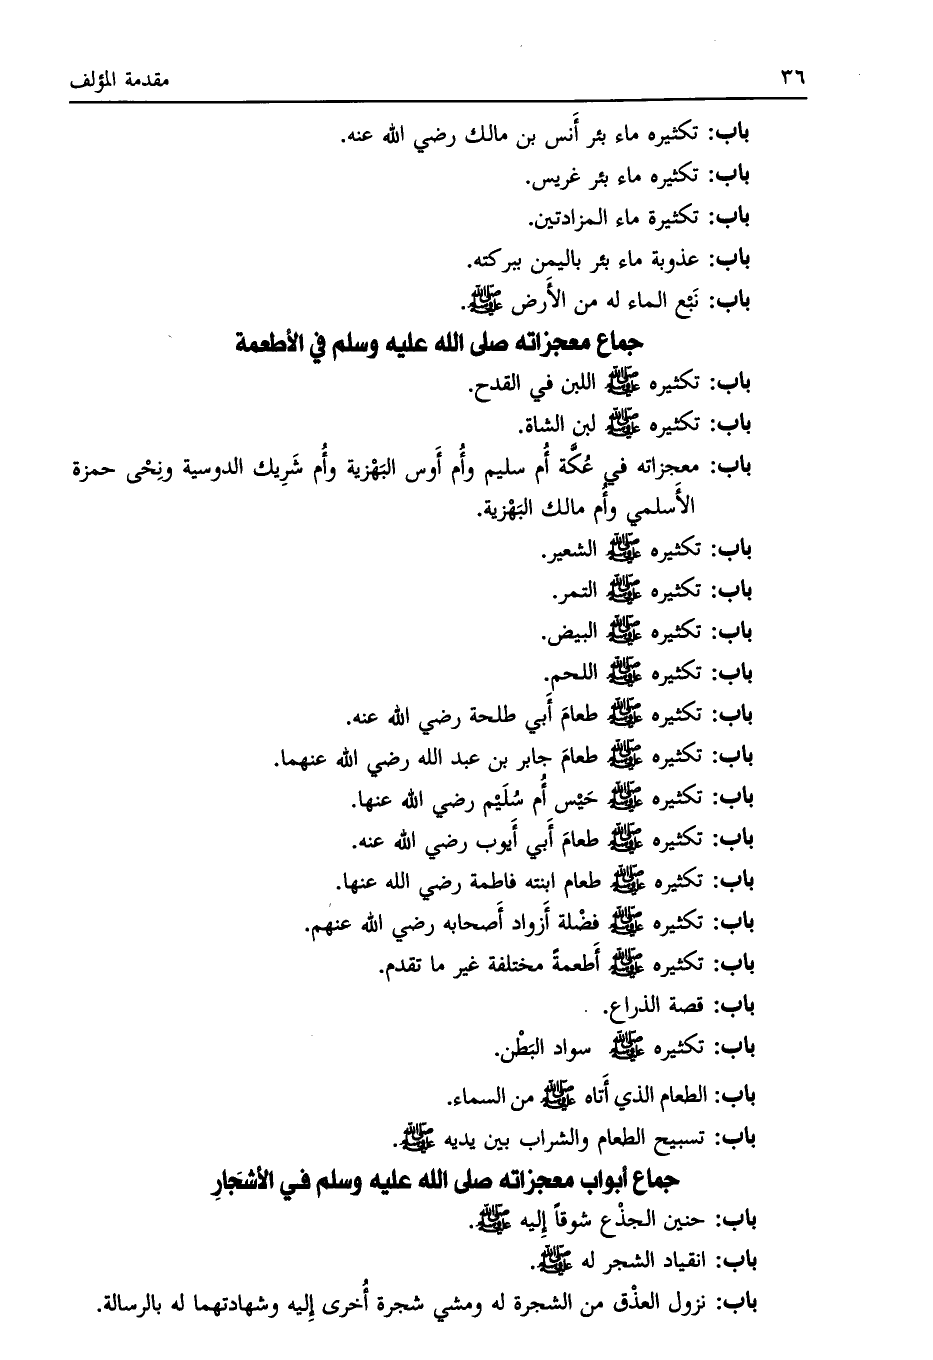 ٣٦ مقدمة المؤلف
باب: تكثيره ماء بئر أَنس بن مالك رضي الله عنه.
باب: تكثيره ماء بئر غريس.
باب: تكثيرة ماء المزادتين.
باب: عذوبة ماء بئر باليمن ببركته.
باب: نَبْع الماء له من الأَرض ﷺ.
جماع معجزاته صلى الله عليه وسلم في الأطعمة
باب: تكثيره ﷺ اللبن في القدح.
باب: تكثيره ﷺ لبن الشاة.
باب: معجزاته في عُكَّة أُم سليم وأُم أَوس البَهْزية وأُم شَرِيك الدوسية ونِحْى حمزة
الأَسلمي وأُم مالك البَهْزية.
باب: تكثيره ﷺ الشعير.
باب: تكثيره ﷺ التمر.
باب: تكثيره ﷺ البيض.
باب: تكثيره ﷺ اللحم.
باب: تكثيره ﷺ طعامَ أَبي طلحة رضي الله عنه.
باب: تكثيره ﷺ طعامَ جابر بن عبد الله رضي الله عنهما.
باب: تكثيره ﷺ حَيْس أُم سُلَيْم رضي الله عنها.
باب: تكثيره ﷺ طعامَ أَبي أَيوب رضي الله عنه.
باب: تكثيره ﷺ طعام ابنته فاطمة رضي الله عنها.
باب: تكثيره ﷺ فضْلة أَزواد أَصحابه رضي الله عنهم.
باب: تكثيره ﷺ أَطعمةً مختلفة غير ما تقدم.
باب: قصة الذراع.
باب: تكثيره ﷺ سواد البَطْن.
باب: الطعام الذي أَتاه ﷺ من السماء.
باب: تسبيح الطعام والشراب بين يديه ﷺ.
جماع أبواب معجزاته صلى الله عليه وسلم في الأشجَارِ
باب: حنين الجذْع شوقاً إِليه ﷺ.
باب: انقياد الشجر له ﷺ.
باب: نزول العذْق من الشجرة له ومشي شجرة أُخرى إِليه وشهادتهما له بالرسالة.